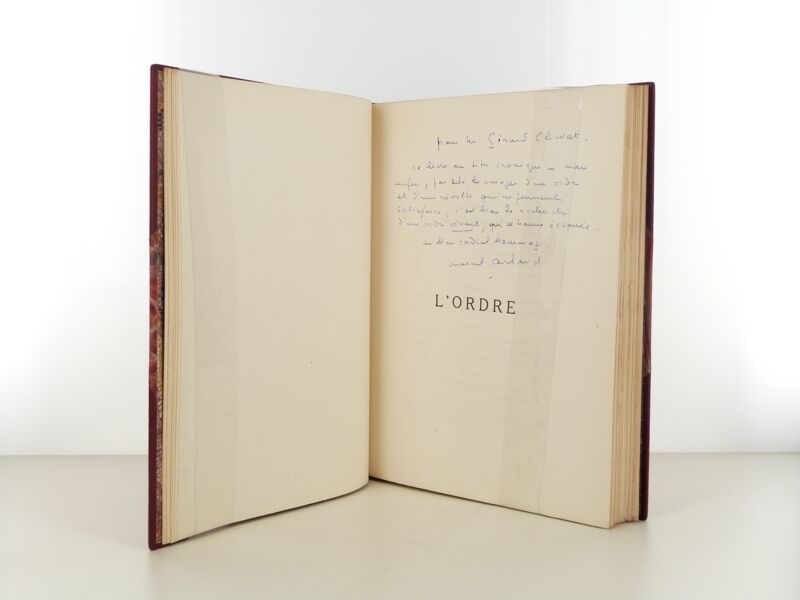 pour M. Gérard Chwat,
ce livre au titre ironique – mais
enfin, par delà les images d'un ordre
et d'une révolte qui ne peuvent
satisfaire, c'est bien la recherche
d'un ordre vivant, qui
en bien cordial hommage.
Marcel Arland
L'ORDRE